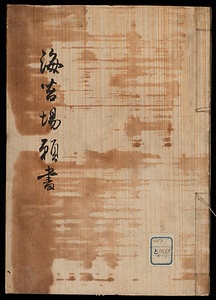 海苔場願書